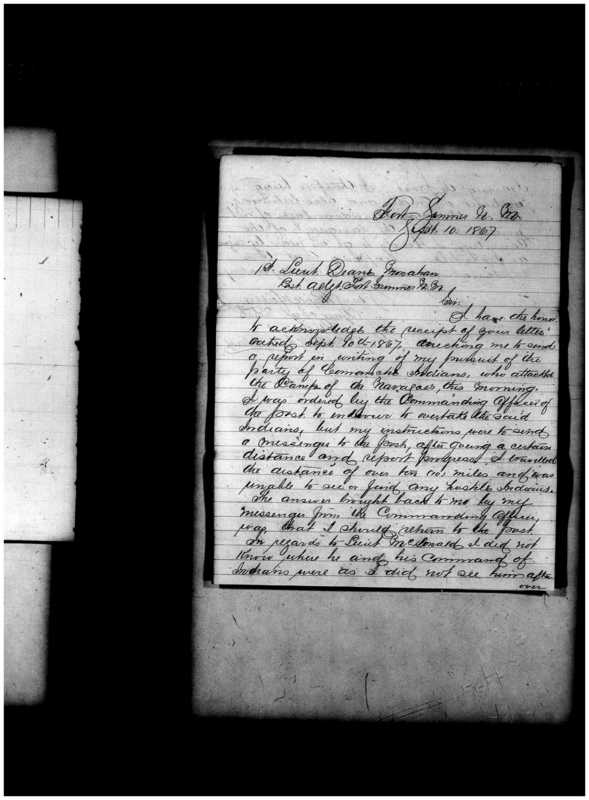 Fort Sumner N. M.
Sept. 10. 1867
1st. Lieut Deane Monahan
Post Adjt. Fort Sumner N. M.
Sir,
I have the honor
to acknowledge the receipt of your letter
dated Sept 10th 1867, directing me to send
a report in writing of my pursuit of the
party of Comanche Indians, who attacked
the Camp of the Navajoes, this morning.
I was ordered by the Commanding Officer of
the post to endeavor to overtake the said
Indians, but my instructions were to send
a messenger to the post, after going a certain
distance and report progress. I travelled
the distance of over ten (10) miles and was
unable to see or find any hostile Indians.
The answer brought back to me by my
messenger from the Commanding Officer,
was, that I should return to the post.
In regards to Lieut McDonald, I did not
know where he and his command of
Indians were as I did not see him after
over